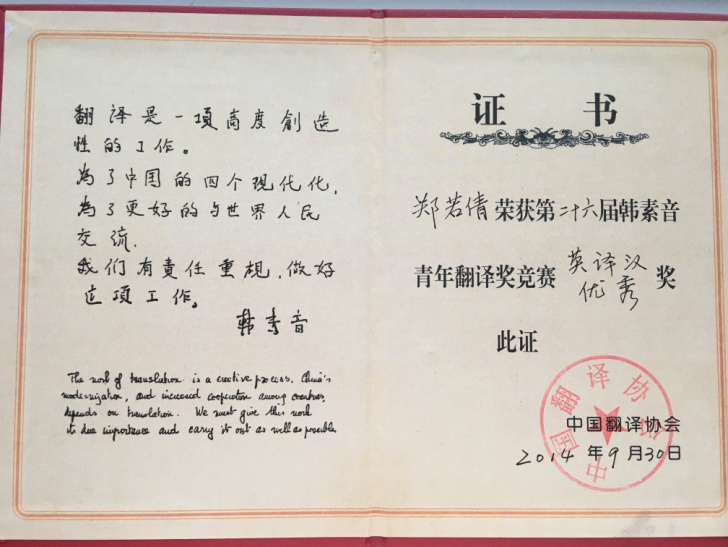 翻译是一項高度創造
性的工作。
為了中国的四个现代化,
為了更好的与世界人民
交流,
我们有責任重視,做好
这項工作。
韩素音
The work of translation is a creative process. China's
modernization, and increased cooperation among countries,
depends on translation. We must give this work
its due importance and carry it out as well as possible
证 书
郑若倩荣获第二十六届韩素音
青年翻译奖竞赛 英译汉
优秀 奖
此证
中国翻译协会
中国翻译协会
2014 年 9 月 30 日